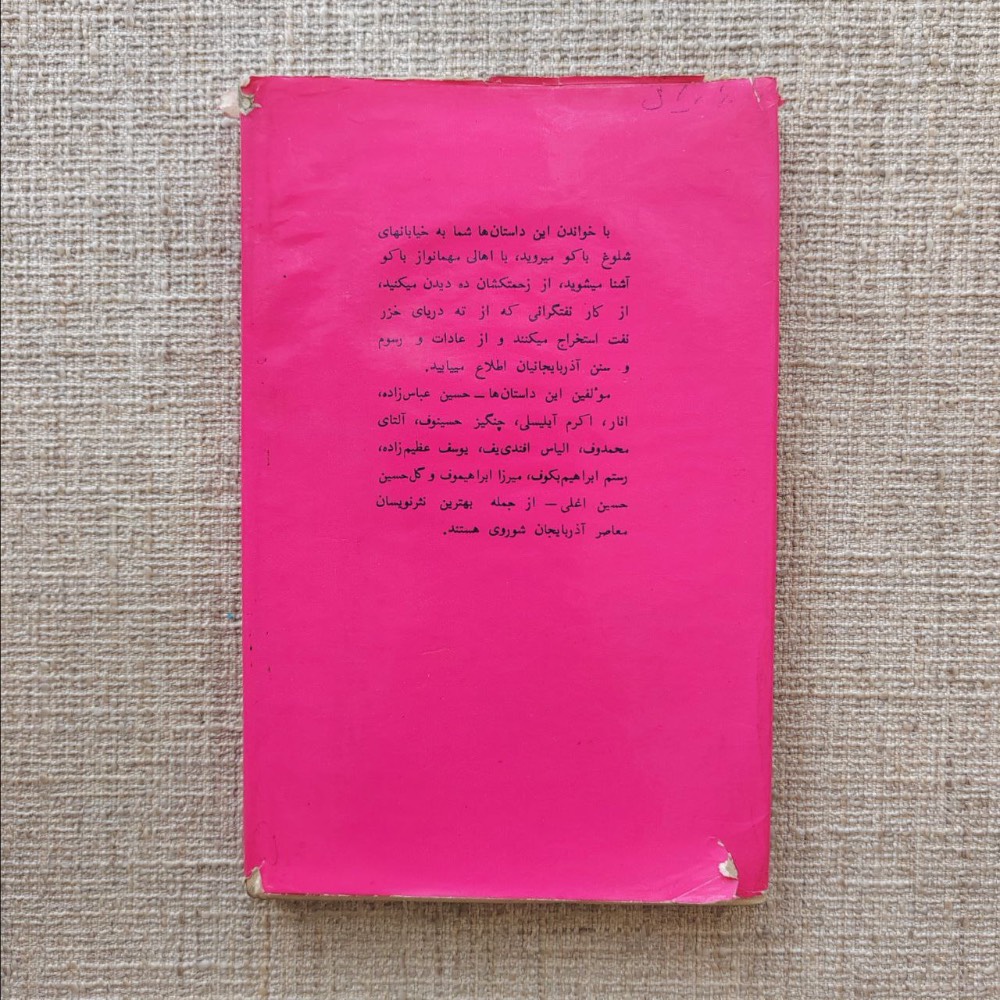 با خواندن این داستان‌ها شما به خیابانهای
شلوغ باکو میروید، با اهالی مهمانواز باکو
آشنا میشوید، از زحمتکشان ده دیدن میکنید،
از کار نفتگرانی که از ته دریای خزر
نفت استخراج میکنند و از عادات و رسوم
و سنن آذربایجانیان اطلاع مییابید.
مؤلفین این داستان‌ها — حسین عباس‌زاده،
انار، اکرم آیلیسلی، چنگیز حسینوف، آلتای
محمدوف، الیاس افندی‌یف، یوسف عظیم‌زاده،
رستم ابراهیم‌بکوف، میرزا ابراهیموف و گل‌حسین
حسین اغلی — از جمله بهترین نثرنویسان
معاصر آذربایجان شوروی هستند.